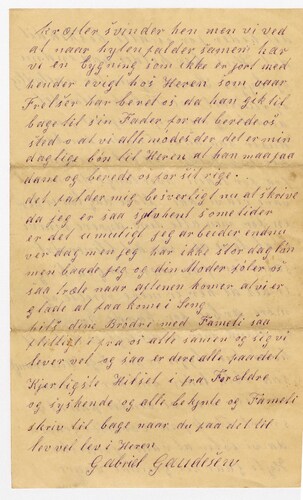 kræfter svinder hen men vi ved
at naar hyten falder samen har
vi en bygning som ikke er jort med
hender evigt hos Heren som vaar
Frelser har beret os da han gik til
bage til sin Fader for at berede os
sted o at vi alle mødes der det er min
daglige bøn til Heren at han maa faa
dane og berede os for sit rige.
det falder mig besverligt nu at skrive
da jeg er saa sjølhent somme tider
er det umuligt jeg arbeider endnu
ver dag men jeg har ikke stor dag løn
men baade jeg og den Moder føler os
saa træte naar aftenen komer at vi er
glade at faa kome i seng
hils dine Brødre med Fameli saa
flittigt i fra os alle samen og sig vi
lever vel og saa er dere alle paa det
Kjerligste Hilset i fra Forældre
og syskende og alle bekjnte og Fameli
skriv til bage naar du faa det til
lev vel lev i Heren
Gabriel Gaudesen